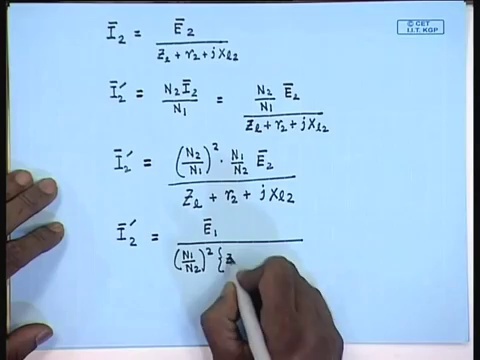 © CET
I.I.T. KGP
Ī₂ = Ē₂ / (Z_L + r₂ + jX_l2)
Ī₂′ = N₂Ī₂ / N₁ = (N₂/N₁) Ē₂ / (Z_L + r₂ + jX_l2)
Ī₂′ = (N₂/N₁)² · (N₁/N₂) Ē₂ / (Z_L + r₂ + jX_l2)
Ī₂′ = Ē₁ / (N₁/N₂)² { Z